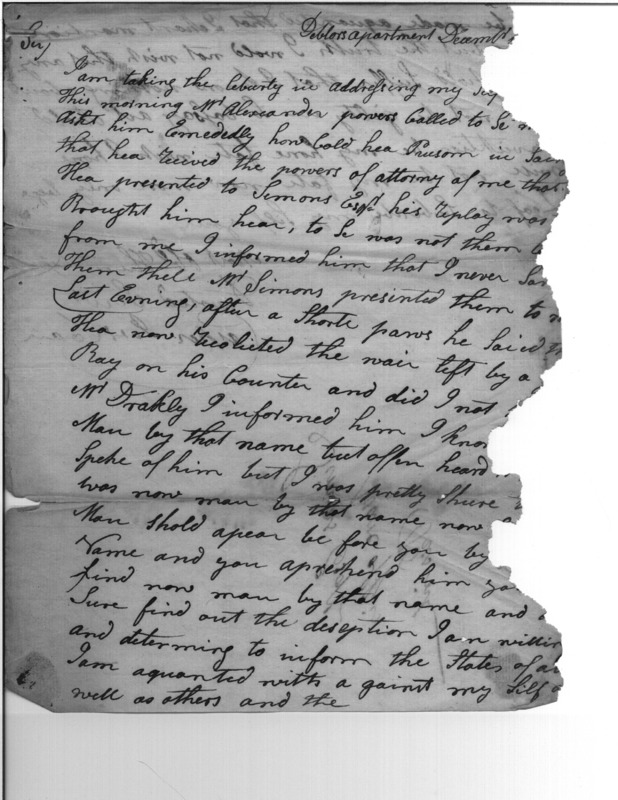 Debtors apartment Decembr
Sir,
I am taking the leberty in addressing my
This morning Mr Alexander powers called to Se
Askt him Emededly how cold hea Prusom in
that hea Reived the powers of attorny of me that
Hea presented to Simons Esqr his Replay was
Brought him hear, to Se was not them
from me I informed him that I never
Them thell Mr Simons presented them to
Last Evning, after a Shorte paws he Saied
Hea now Recolicted the wair left by a
Ray on his Counter and did I not
Mr Drakly I informed him I know
Man by that name but offen heard
Speke of him but I was pretty Shure
was now man by that name now
Man shold apear be fore you by
Name and you aprehend him you
find now man by that name and
Sure find out the deseption I am willin
and determing to inform the States of
I am aquanted with a gainst my Silf
well as others and the